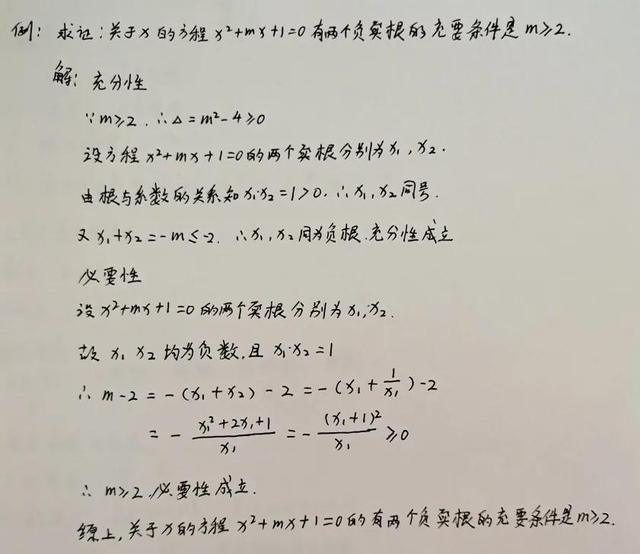 例: 求证:关于x的方程 x²+mx+1=0 有两个负实根的充要条件是 m≥2.
解: 充分性
∵m≥2. ∴△=m²-4≥0
设方程 x²+mx+1=0的两个实根分别为x₁,x₂.
由根与系数的关系知x₁·x₂=1>0. ∴x₁,x₂同号.
又x₁+x₂=-m≤-2. ∴x₁,x₂同为负根.充分性成立
必要性
设x²+mx+1=0的两个实根分别为x₁,x₂.
故 x₁ x₂ 均为负数,且x₁·x₂=1
∴ m-2 = -(x₁+x₂)-2 = -(x₁+1/x₁)-2
= -(x₁²+2x₁+1)/x₁ = -(x₁+1)²/x₁ ≥0
∴ m≥2.必要性成立.
综上,关于x的方程 x²+mx+1=0的有两个负实根的充要条件是m≥2.